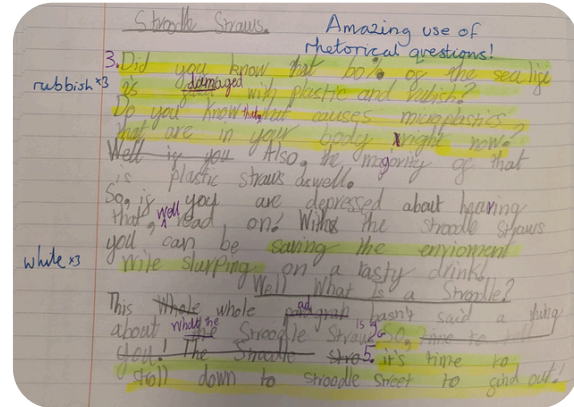 Stroodle Straws.
Amazing use of
rhetorical questions!
3. Did you know that 60% of the sea life
rubbish x3
is damaged with plastic and rubish?
Do you know that causes microplastics
that are in your body right now?
Well is you Also, the majority of that
is plastic straws aswell.
So, is you are depressed about hearing
that, well read on! With the stroodle straws
you can be saving the enviroment
while x3
wite slurping on a tasty drink!
Well What is a Stroodle?
This Whole whole paragraph hasn't said a thing
about What the Stroodle Straw is So, time to tell
you! The Stroodle stro 5. it's time to
stroll down to stroodle street to find out!